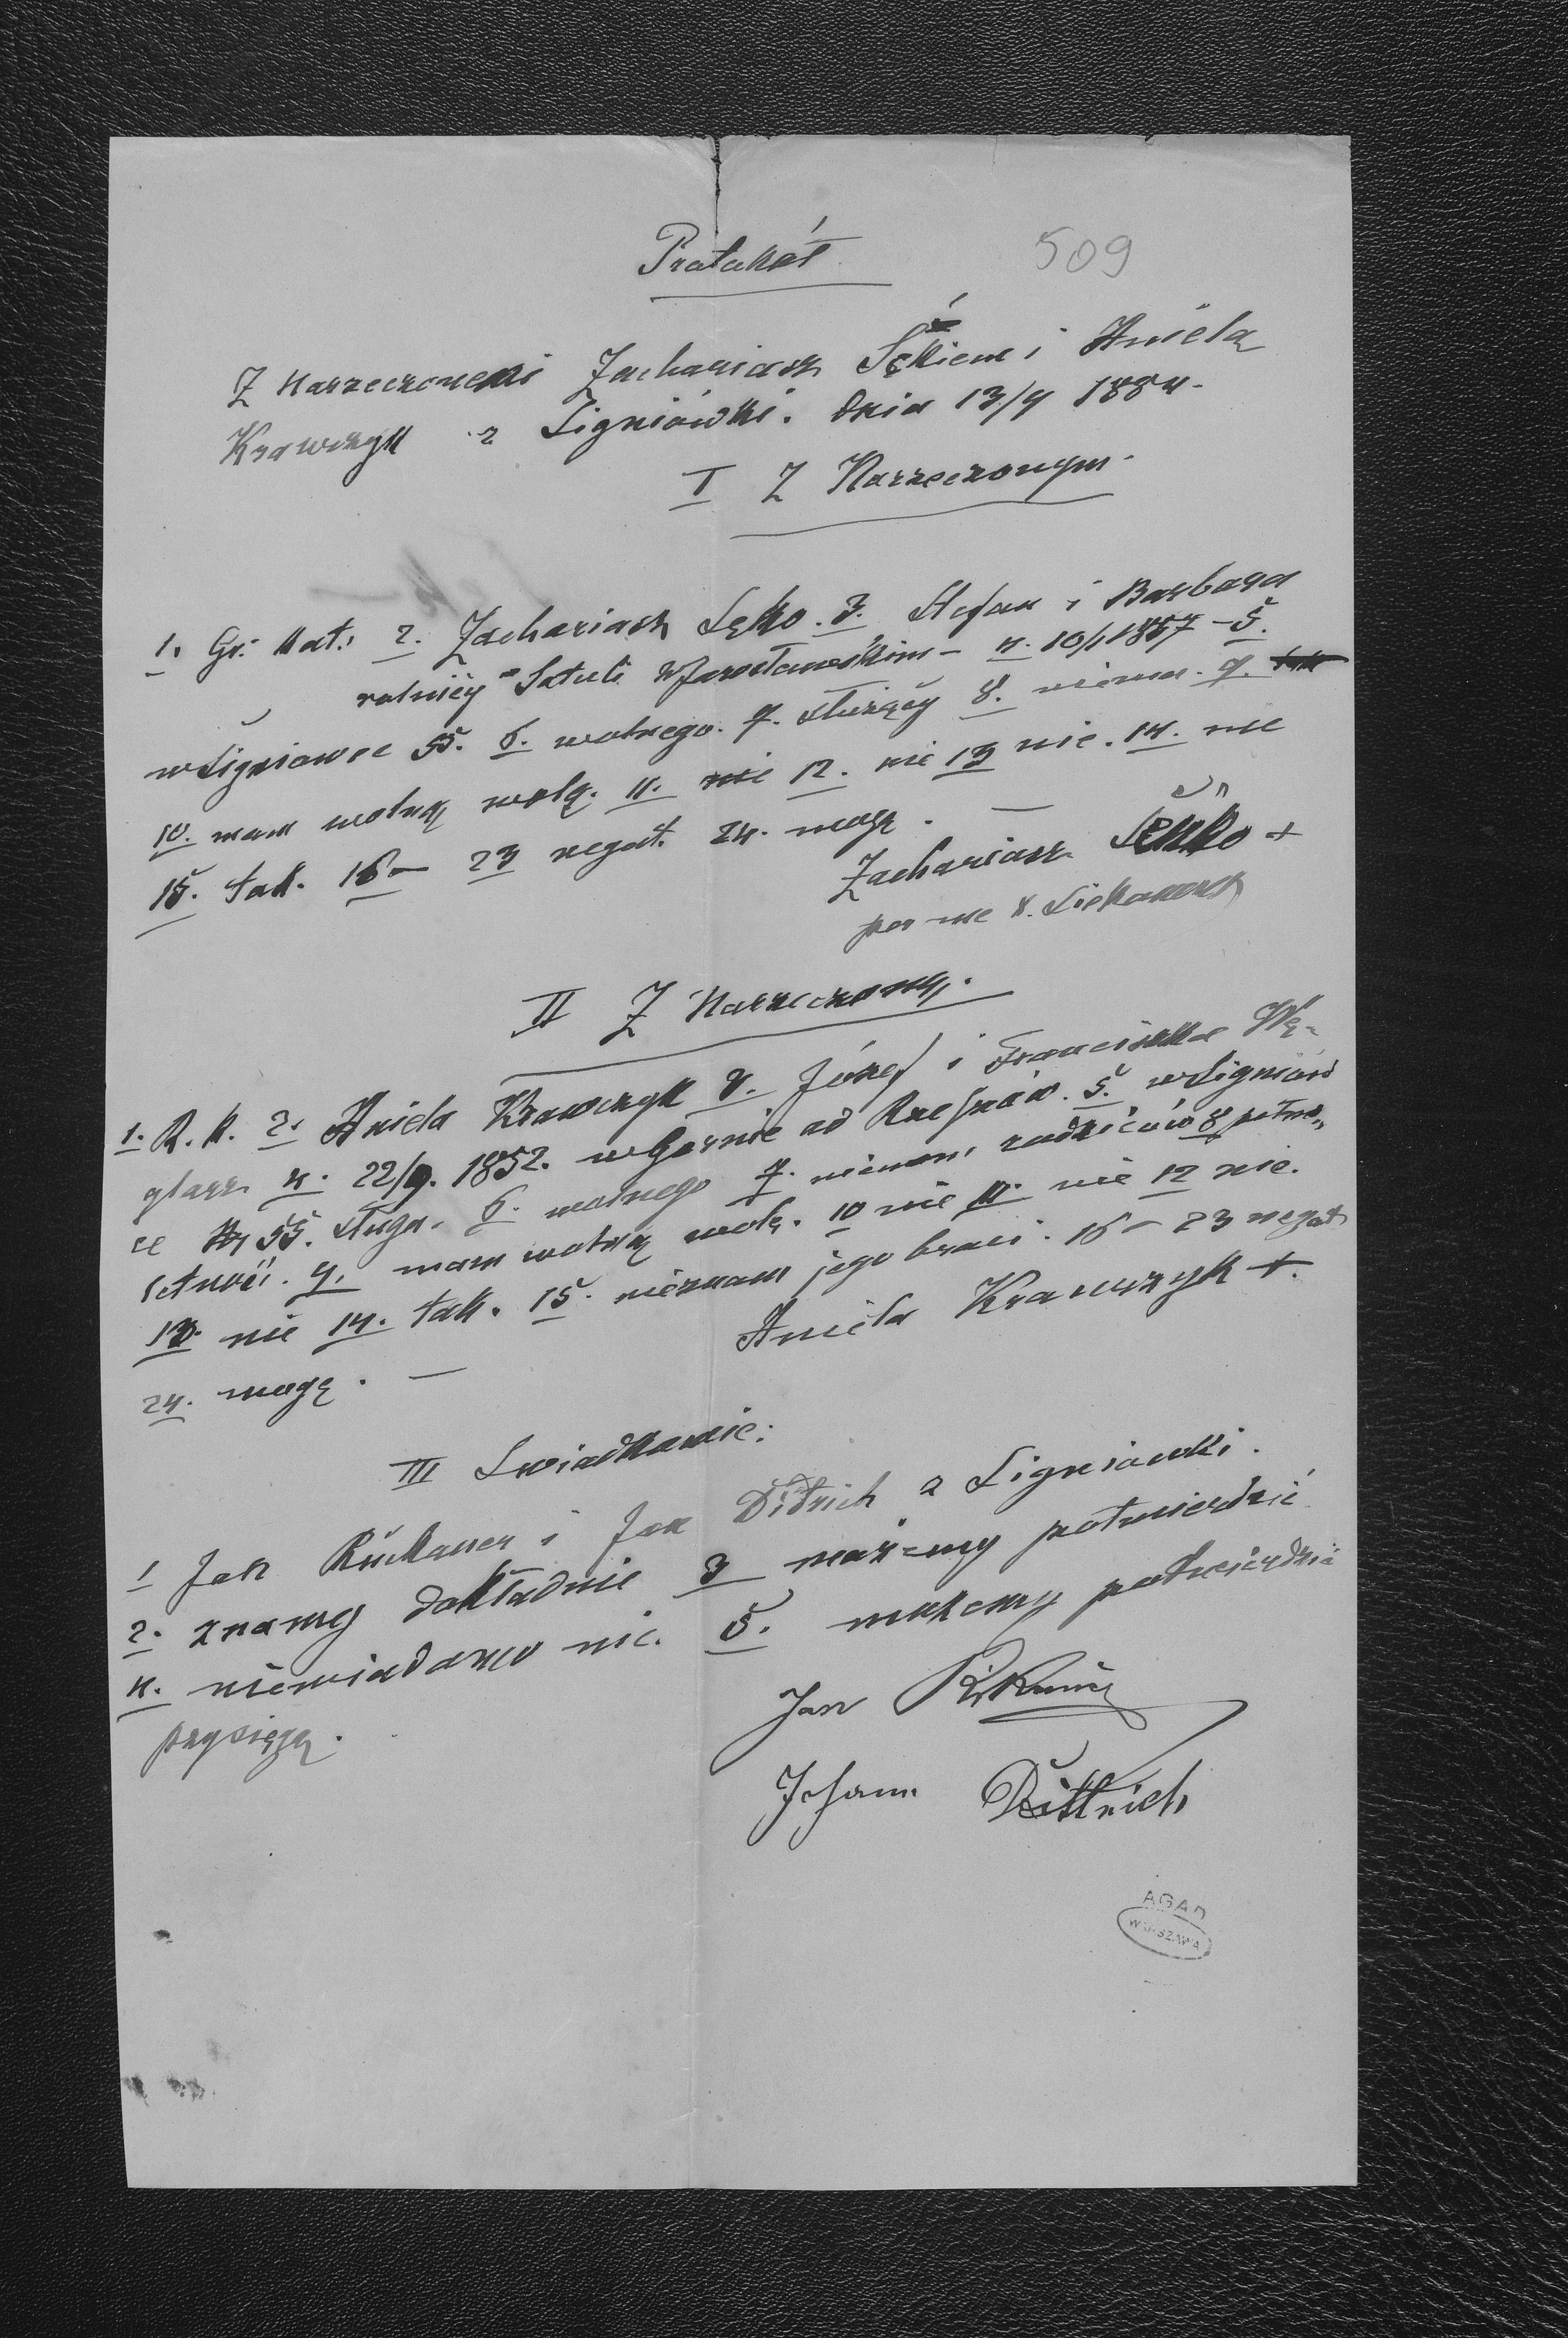 Protokół
509
Z Narzeczonemi Zachariasz Sękiem i Anielą
Krawczyk z Signiówki. dnia 13/9 1884.
I Z Narzeczonym.
1. Gr. kat. 2. Zachariasz Sęko. 3. Stefan i Barbara
rolnicy w Jarosławskim – 4. 10/1 1857 – 5.
w Signiowce 55. 6. wolnego. 7. służący 8. niema. 9.
10. mam wolną wolę. 11. nie 12. nie 13 nie. 14. nie
15. tak. 16 – 23 negat. 24. mogę. –
Zachariasz Seńko +
por me
II Z Narzeczoną.
1. R. k. 2. Aniela Krawczyk 3. Józef i Franciszka Wę-
glarz 4. 22/9. 1852. w Gornie ad Rzeszów. 5. w Signiów
ce Nr 55. sługa. 6. wolnego 7. niemam rodziców 8 pełno-
letność. 9. mam wolną wolę. 10 nie 11. nie 12 nie.
13. nie 14. tak. 15. nieznam jego braci. 16 – 23 negat
24. mogę. –
Aniela Krawczyk +.
III Swiadkowie:
1 Jan Rückauer i Jan Ditrich z Signiowki.
2. znamy dokładnie 3 możemy potwierdzić
4. niewiadomo nic. 5. możemy potwierdzić
przysięgą.
Jan
Johann Dittrich
AGAD
WARSZAWA